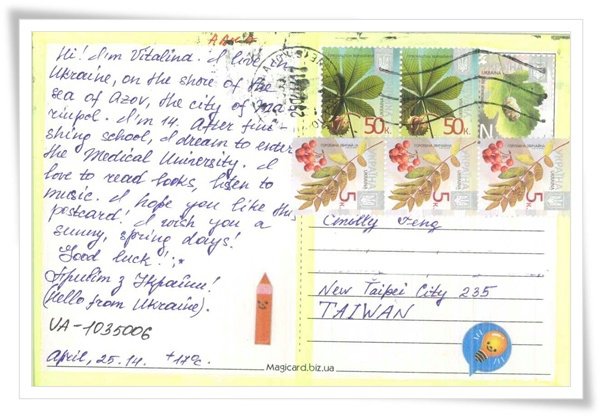 Hi! I'm Vitalina. I live in
Ukraine, on the shore of the
sea of Azov, the city of Ma
riupol. I'm 14. After fini-
shing school, I dream to enter
the Medical University. I
love to read books, listen to
music. I hope you like the
postcard! I wish you a
sunny, spring days!
Good luck!
Привіт з України!
(Hello from Ukraine).
UA-1035006
April, 25.14. +17°c.
50к.
50к.
N
УКРАЇНА
UKRAINE
5к.
5к.
5к.
New Taipei City 235
TAIWAN
Magicard.biz.ua